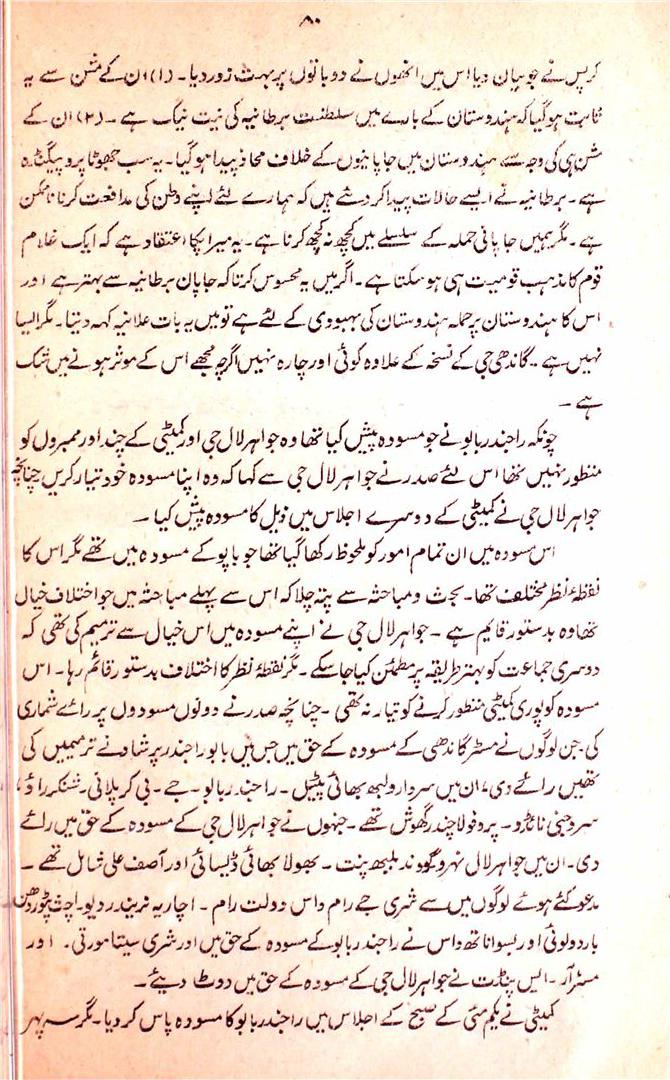 ۸۰
کرپس نے جو بیان دیا اس میں انھوں نے دو باتوں پر بہت زور دیا۔ (۱) ان کے مشن سے یہ
ثابت ہو گیا کہ ہندوستان کے بارے میں سلطنت برطانیہ کی نیت نیک ہے۔ (۲) ان کے
مشن ہی کی وجہ سے ہندوستان میں جاپانیوں کے خلاف محاذ پیدا ہو گیا۔ یہ سب جھوٹا پروپیگنڈہ
ہے۔ برطانیہ نے ایسے حالات پیدا کر دئے ہیں کہ ہمارے لئے اپنے وطن کی مدافعت کرنا ناممکن
ہے۔ مگر ہمیں جاپانی حملہ کے سلسلے میں کچھ نہ کچھ کرنا ہے۔ یہ میرا پکا اعتقاد ہے کہ ایک غلام
قوم کا مذہب قومیت ہی ہو سکتا ہے۔ اگر میں یہ محسوس کرتا کہ جاپان برطانیہ سے بہتر ہے اور
اس کا ہندوستان پر حملہ ہندوستان کی بہبودی کے لئے ہے تو میں یہ بات علانیہ کہہ دیتا۔ مگر ایسا
نہیں ہے۔ گاندھی جی کے نسخہ کے علاوہ کوئی اور چارہ نہیں اگرچہ مجھے اس کے موثر ہونے میں شک
ہے۔
چونکہ راجندر بابو نے جو مسودہ پیش کیا تھا وہ جواہر لال جی اور کمیٹی کے چند اور ممبروں کو
منظور نہیں تھا اس لئے صدر نے جواہر لال جی سے کہا کہ وہ اپنا مسودہ خود تیار کریں چنانچہ
جواہر لال جی نے کمیٹی کے دوسرے اجلاس میں ذیل کا مسودہ پیش کیا۔
اس مسودہ میں ان تمام امور کو ملحوظ رکھا گیا تھا جو باپو کے مسودہ میں تھے مگر اس کا
نقطۂ نظر مختلف تھا۔ بحث و مباحثہ سے پتہ چلا کہ اس سے پہلے مباحثہ میں جو اختلاف خیال
تھا وہ بدستور قایم ہے۔ جواہر لال جی نے اپنے مسودہ میں اس خیال سے ترمیم کی تھی کہ
دوسری جماعت کو بہتر طریقہ پر مطمئن کیا جا سکے۔ مگر نقطۂ نظر کا اختلاف بدستور قائم رہا۔ اس
مسودہ کو پوری کمیٹی منظور کرنے کو تیار نہ تھی۔ چنانچہ صدر نے دونوں مسودوں پر رائے شماری
کی۔ جن لوگوں نے مسٹر گاندھی کے مسودہ کے حق میں جس میں بابو راجندر پرشاد نے ترمیمیں کی
تھیں رائے دی، ان میں سردار ولبھ بھائی پٹیل۔ راجندر بابو۔ جے۔ بی کرپلانی۔ شنکر راؤ،
سروجنی نائڈو۔ پروفولا چندر گھوش تھے۔ جنہوں نے جواہر لال جی کے مسودہ کے حق میں رائے
دی۔ ان میں جواہر لال نہرو گووند بلبھ پنت۔ بھولا بھائی ڈیسائی اور آصف علی شامل تھے۔
مدعو کئے ہوئے لوگوں میں سے شری جے رام داس دولت رام۔ اچاریہ نریندر دیو۔ اچت پٹوردھن
باردولوئی اور بسواناتھ داس نے راجندر بابو کے مسودہ کے حق میں اور شری سیتا مورتی۔ اور
مسٹر آر۔ ایس پنڈت نے جواہر لال جی کے مسودہ کے حق میں ووٹ دیئے۔
کمیٹی نے یکم مئی کے صبح کے اجلاس میں راجندر بابو کا مسودہ پاس کر دیا۔ مگر سہ پہر